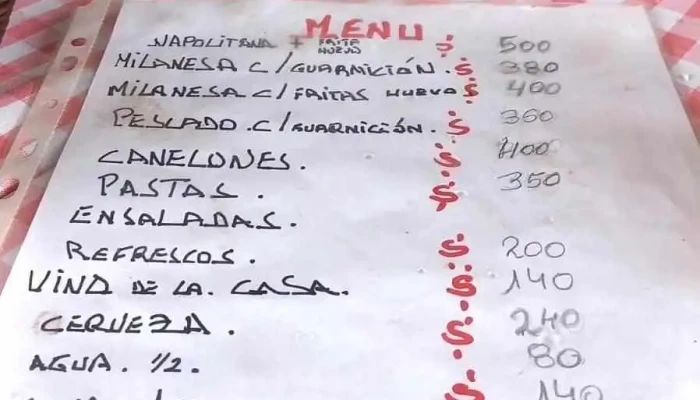 MENU
NAPOLITANA + FRITA HUEVO $ 500
MILANESA C/GUARNICIÓN. $ 380
MILANESA C/FRITAS HUEVO $ 400
PESCADO. C/GUARNICIÓN. $ 360
CANELONES. $ 400
PASTAS. $ 350
ENSALADAS.
REFRESCOS. $ 200
VINO DE LA. CASA. $ 140
CERVEZA. $ 240
AGUA. 1/2. $ 80
$ 140